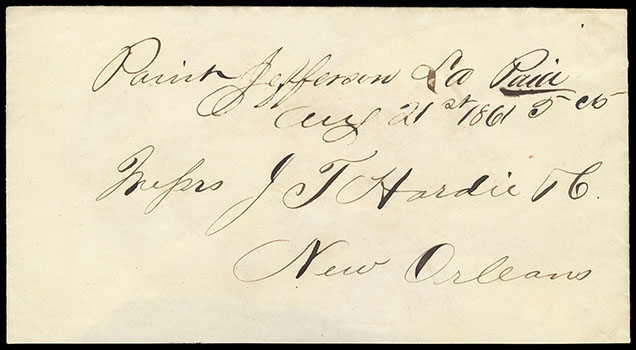 Point Jefferson La Paid
Aug 21st 1861 5 cts
Messrs J T Hardie & C.
New Orleans